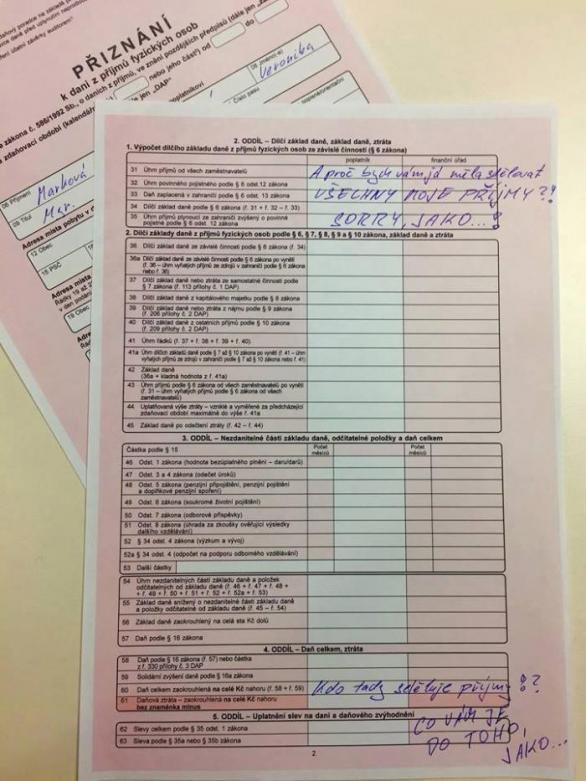 PŘIZNÁNÍ
k dani z příjmů fyzických osob
zákona č. 586/1992 Sb., o daních z příjmů, ve znění pozdějších předpisů (dále jen „zákon“)
zdaňovací období (kalendářní
nebo jeho část) od
do
dále jen „DAP“
Číslo pasu
06 Příjmení
Marková
Veronika
09 Titul
Mgr.
Adresa místa pobytu v
12 Obec
15 PSČ
Adresa místa
19 Obec
2. ODDÍL – Dílčí základ daně, základ daně, ztráta
1. Výpočet dílčího základu daně z příjmů fyzických osob ze závislé činnosti (§ 6 zákona)
poplatník
finanční úřad
31 Úhrn příjmů od všech zaměstnavatelů
A proč bych vám já měla sdělovat
32 Úhrn povinného pojistného podle § 6 odst. 12 zákona
VŠECHNY MOJE PŘÍJMY?!
33 Daň zaplacená v zahraničí podle § 6 odst. 13 zákona
34 Dílčí základ daně podle § 6 zákona (ř. 31 + ř. 32 – ř. 33)
35 Úhrn příjmů plynoucí ze zahraničí zvýšený o povinné
pojistné podle § 6 odst. 12 zákona
SORRY, JAKO...!
2. Dílčí základy daně z příjmů fyzických osob podle § 6, § 7, § 8, § 9 a § 10 zákona, základ daně a ztráta
36 Dílčí základ daně ze závislé činnosti podle § 6 zákona (ř. 34)
36a Dílčí základ daně ze závislé činnosti podle § 6 zákona po vynětí
(ř. 36 – úhrn vyňatých příjmů ze zdrojů v zahraničí podle § 6 zákona
nebo ř. 36)
37 Dílčí základ daně nebo ztráta ze samostatné činnosti podle
§ 7 zákona (ř. 113 přílohy č. 1 DAP)
38 Dílčí základ daně z kapitálového majetku podle § 8 zákona
39 Dílčí základ daně nebo ztráta z nájmu podle § 9 zákona
(ř. 206 přílohy č. 2 DAP)
40 Dílčí základ daně z ostatních příjmů podle § 10 zákona
(ř. 209 přílohy č. 2 DAP)
41 Úhrn řádků (ř. 37 + ř. 38 + ř. 39 + ř. 40)
41a Úhrn dílčích základů daně podle § 7 až § 10 zákona po vynětí (ř. 41 – úhrn
vyňatých příjmů ze zdrojů v zahraničí podle § 7 až § 10 zákona nebo ř. 41)
42 Základ daně
(36a + kladná hodnota z ř. 41a)
43 Úhrn příjmů podle § 6 zákona od všech zaměstnavatelů po vynětí
(ř. 31 – úhrn vyňatých příjmů podle § 6 zákona od všech
zaměstnavatelů)
44 Uplatňovaná výše ztráty – vzniklé a vyměřené za předcházející
zdaňovací období maximálně do výše ř. 41a
45 Základ daně po odečtení ztráty (ř. 42 – ř. 44)
3. ODDÍL – Nezdanitelné části základu daně, odčitatelné položky a daň celkem
Částka podle § 15
Počet
měsíců
Počet
měsíců
46 Odst. 1 zákona (hodnota bezúplatného plnění – daru/darů)
47 Odst. 3 a 4 zákona (odečet úroků)
48 Odst. 5 zákona (penzijní připojištění, penzijní pojištění
a doplňkové penzijní spoření)
49 Odst. 6 zákona (soukromé životní pojištění)
50 Odst. 7 zákona (odborové příspěvky)
51 Odst. 8 zákona (úhrada za zkoušky ověřující výsledky
dalšího vzdělávání)
52 § 34 odst. 4 zákona (výzkum a vývoj)
52a § 34 odst. 4 (odpočet na podporu odborného vzdělávání)
53 Další částky
54 Úhrn nezdanitelných částí základu daně a položek
odčitatelných od základu daně (ř. 46 + ř. 47 + ř. 48 +
+ ř. 49 + ř. 50 + ř. 51 + ř. 52 + ř. 52a + ř. 53)
55 Základ daně snížený o nezdanitelné části základu daně
a položky odčitatelné od základu daně (ř. 45 – ř. 54)
56 Základ daně zaokrouhlený na celá sta Kč dolů
57 Daň podle § 16 zákona
4. ODDÍL – Daň celkem, ztráta
58 Daň podle § 16 zákona (ř. 57) nebo částka
z ř. 330 přílohy č. 3 DAP
59 Solidární zvýšení daně podle § 16a zákona
60 Daň celkem zaokrouhlená na celé Kč nahoru (ř. 58 + ř. 59)
Kdo tady sděluje příjmy!?
61 Daňová ztráta – zaokrouhlená na celé Kč nahoru
bez znaménka minus
5. ODDÍL – Uplatnění slev na dani a daňového zvýhodnění
62 Slevy celkem podle § 35 odst. 1 zákona
63 Sleva podle § 35a nebo § 35b zákona
CO VÁM JE
DO TOHO,
JAKO...
2